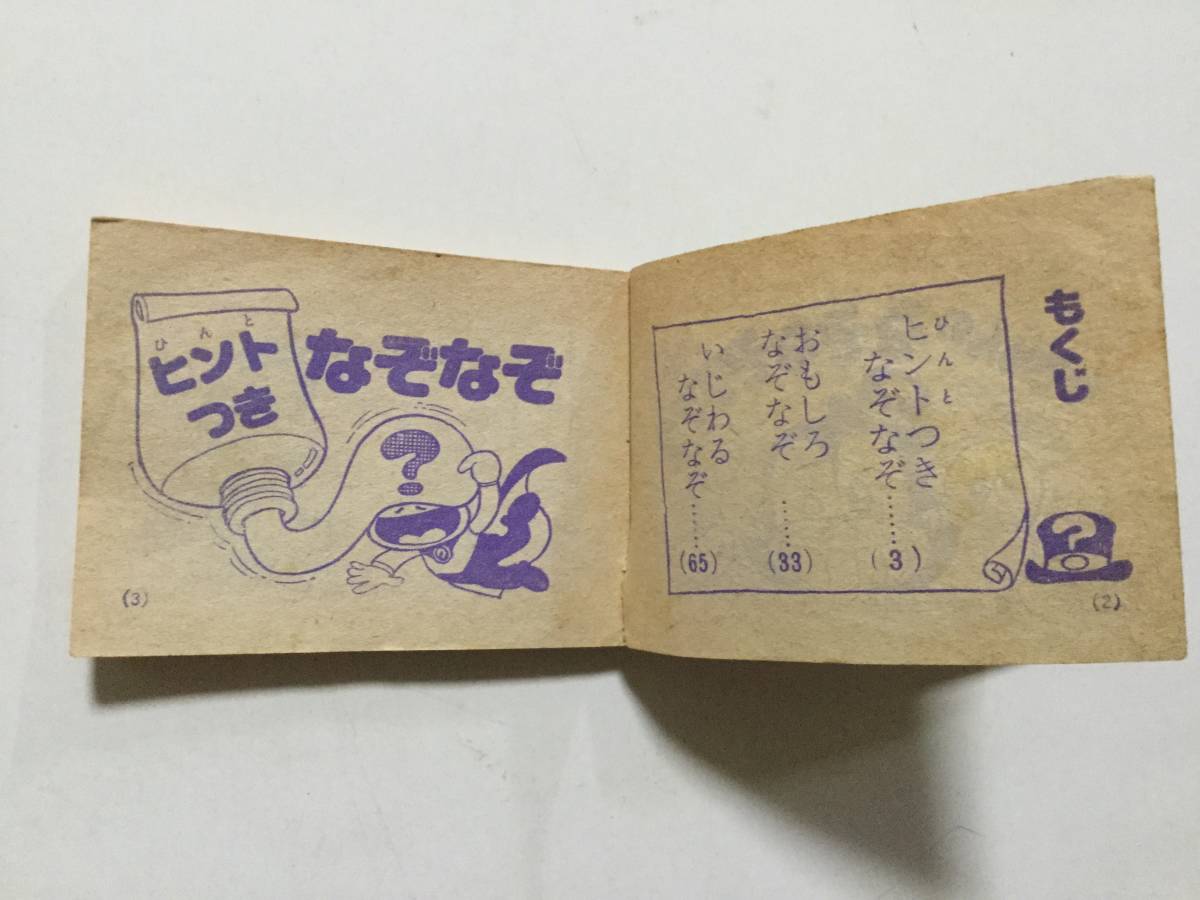 もくじ
ひんと
ヒントつき
なぞなぞ……(3)
おもしろ
なぞなぞ……(33)
いじわる
なぞなぞ……(65)
?
(2)
ひんと
ヒント
つき
なぞなぞ
?
(3)